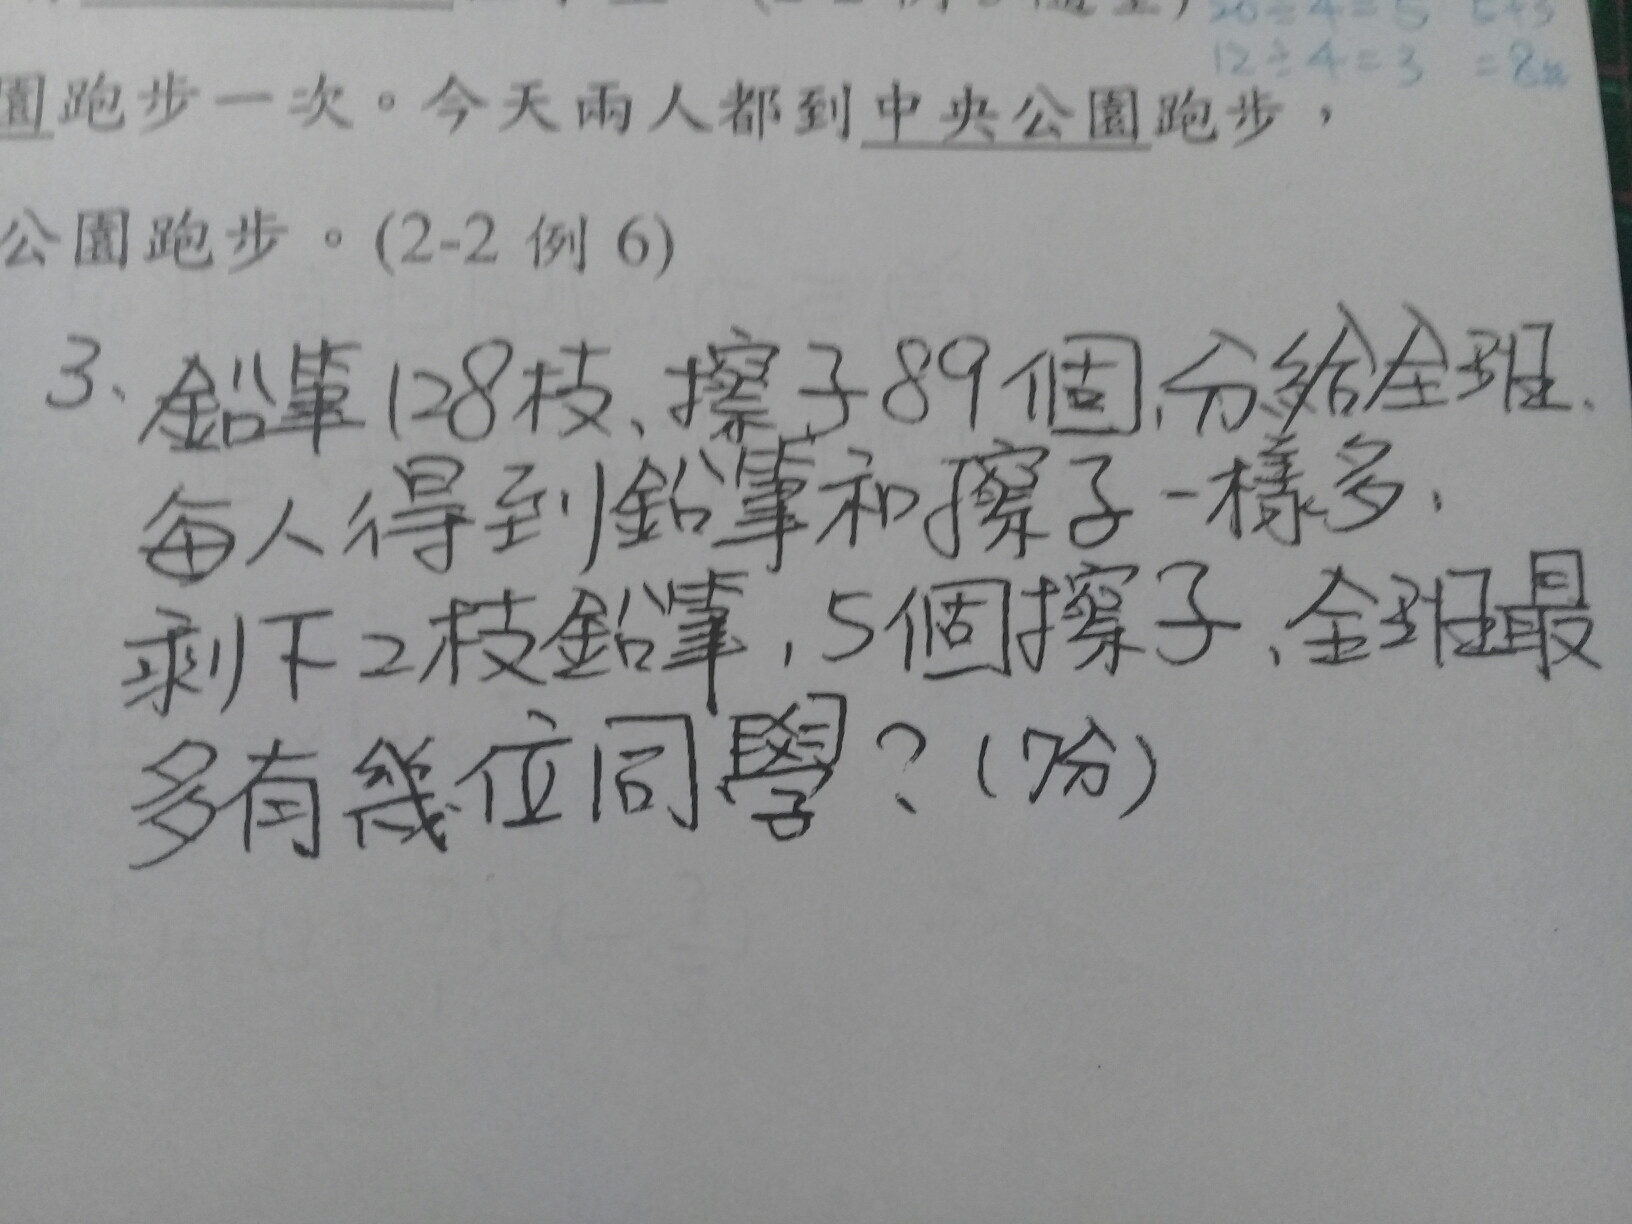 20÷4=5 5+3
12÷4=3 =8
園跑步一次。今天兩人都到中央公園跑步，
公園跑步。(2-2 例 6)
3、鉛筆128枝、擦子89個，分給全班、
每人得到鉛筆和擦子一樣多，
剩下2枝鉛筆，5個擦子、全班最
多有幾位同學？(7分)